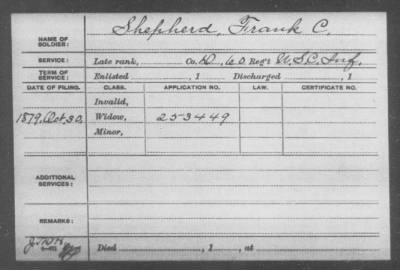 NAME OF SOLDIER: Shepherd, Frank C.
SERVICE: Late rank, Co. D, 60 Reg't U.S.C. Inf.
TERM OF SERVICE: Enlisted , 1 Discharged , 1
DATE OF FILING. CLASS. APPLICATION NO. LAW. CERTIFICATE NO.
Invalid,
1879, Oct. 30, Widow, 253449
Minor,
ADDITIONAL SERVICES:
REMARKS:
Died , 1 , at